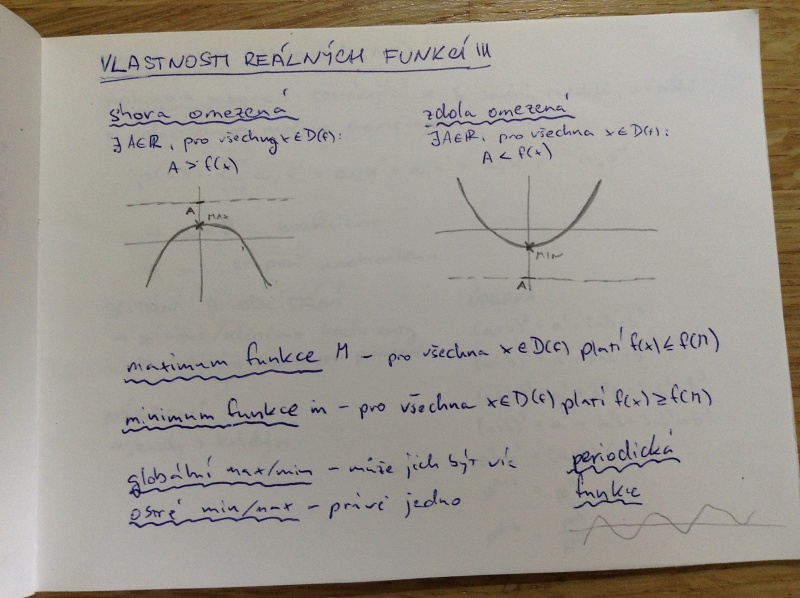 VLASTNOSTI REÁLNÝCH FUNKCÍ III
shora omezená
∃A∈ℝ, pro všechny x∈D(f):
A > f(x)
A
MAX
zdola omezená
∃A∈ℝ, pro všechna x∈D(f):
A < f(x)
MIN
A
maximum funkce M – pro všechna x∈D(f) platí f(x) ≤ f(M)
minimum funkce m – pro všechna x∈D(f) platí f(x) ≥ f(M)
globální max/min – může jich být víc
ostré min/max – právě jedno
periodická
funkce